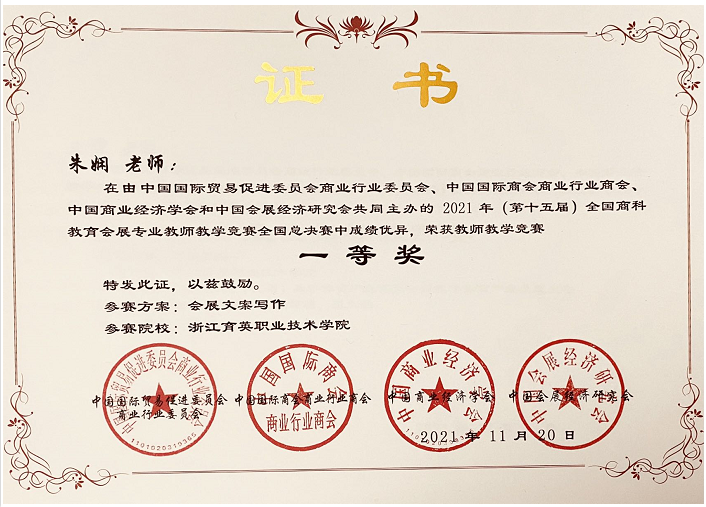 证 书
朱娴 老师：
在由中国国际贸易促进委员会商业行业委员会、中国国际商会商业行业商会、
中国商业经济学会和中国会展经济研究会共同主办的 2021 年（第十五届）全国商科
教育会展专业教师教学竞赛全国总决赛中成绩优异，荣获教师教学竞赛
一 等 奖
特发此证，以兹鼓励。
参赛方案：会展文案写作
参赛院校：浙江育英职业技术学院
中国国际贸易促进委员会
商业行业委员会
中国国际商会商业行业商会
中国商业经济学会
中国会展经济研究会
2021 年 11 月 20 日
中国国际商会
商业行业商会
中国商业经济学会
中国会展经济研究会